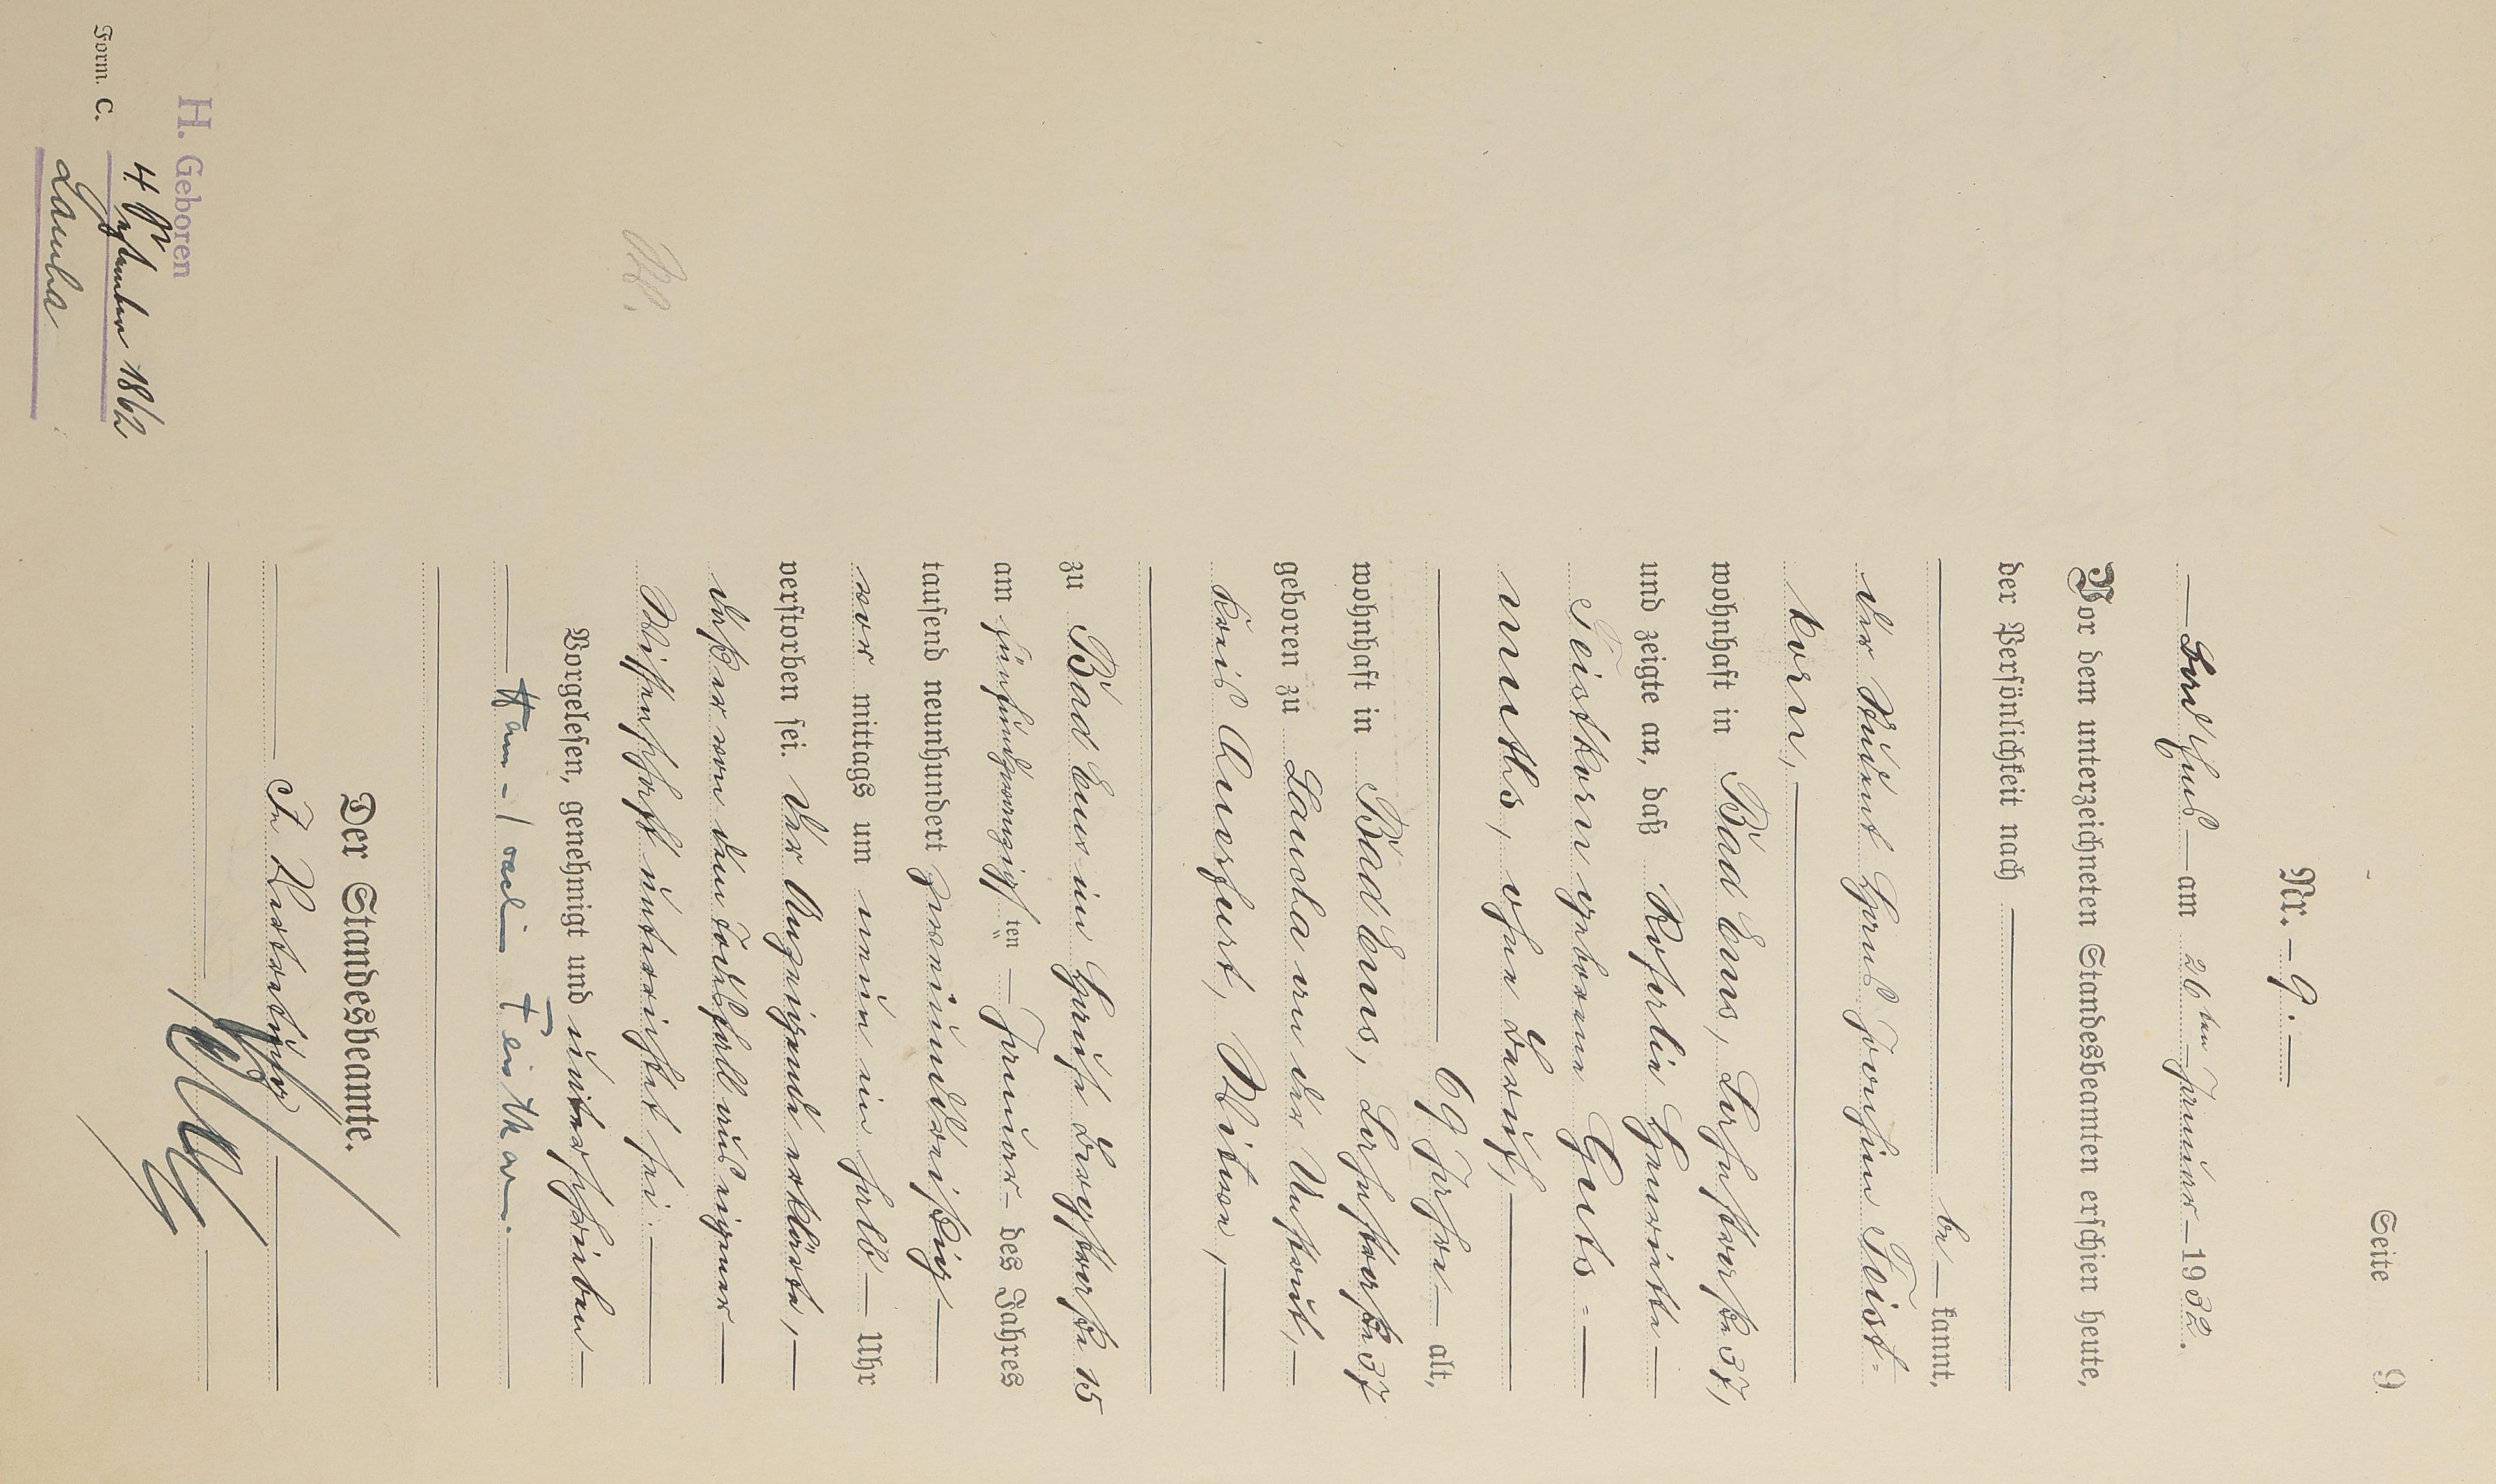 Seite 9.
Nr. 9.
Bad Ems am 26ten Januar 1932.
Vor dem unterzeichneten Standesbeamten erschien heute,
der Persönlichkeit nach
be kannt,
der Student Hans Joachim Teist-
korn,
wohnhaft in Bad Ems, Lahnstraße 37,
und zeigte an, daß Rosalie Henriette
Teistkorn geborene Guts-
muths, ohne Beruf,
69 Jahre alt,
wohnhaft in Bad Ems, Lahnstraße 37
geboren zu Laucha an der Unstrut,
Kreis Querfurt, Witwe,
zu Bad Ems im Hause Bergstraße 15
am fünfundzwanzigsten Januar des Jahres
tausend neunhundert zweiunddreißig
vor mittags um neun ein halb Uhr
verstorben sei. Der Anzeigende erklärte,
daß er von dem Todesfall aus eigener
Wissenschaft unterrichtet sei.
Vorgelesen, genehmigt und unterschrieben
Hans-Joachim Teistkorn.
Der Standesbeamte.
In Vertretung
H. Geboren
4. September 1862
Laucha
Form. C.